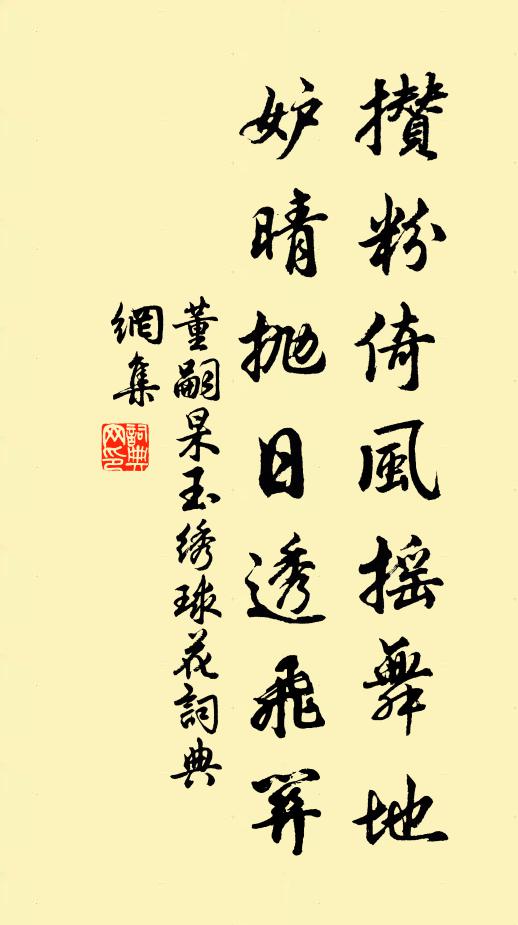 攢粉倚風搖舞地
妒晴拋日透飛
董嗣杲玉绣球花詞典
網集
詞典
网印